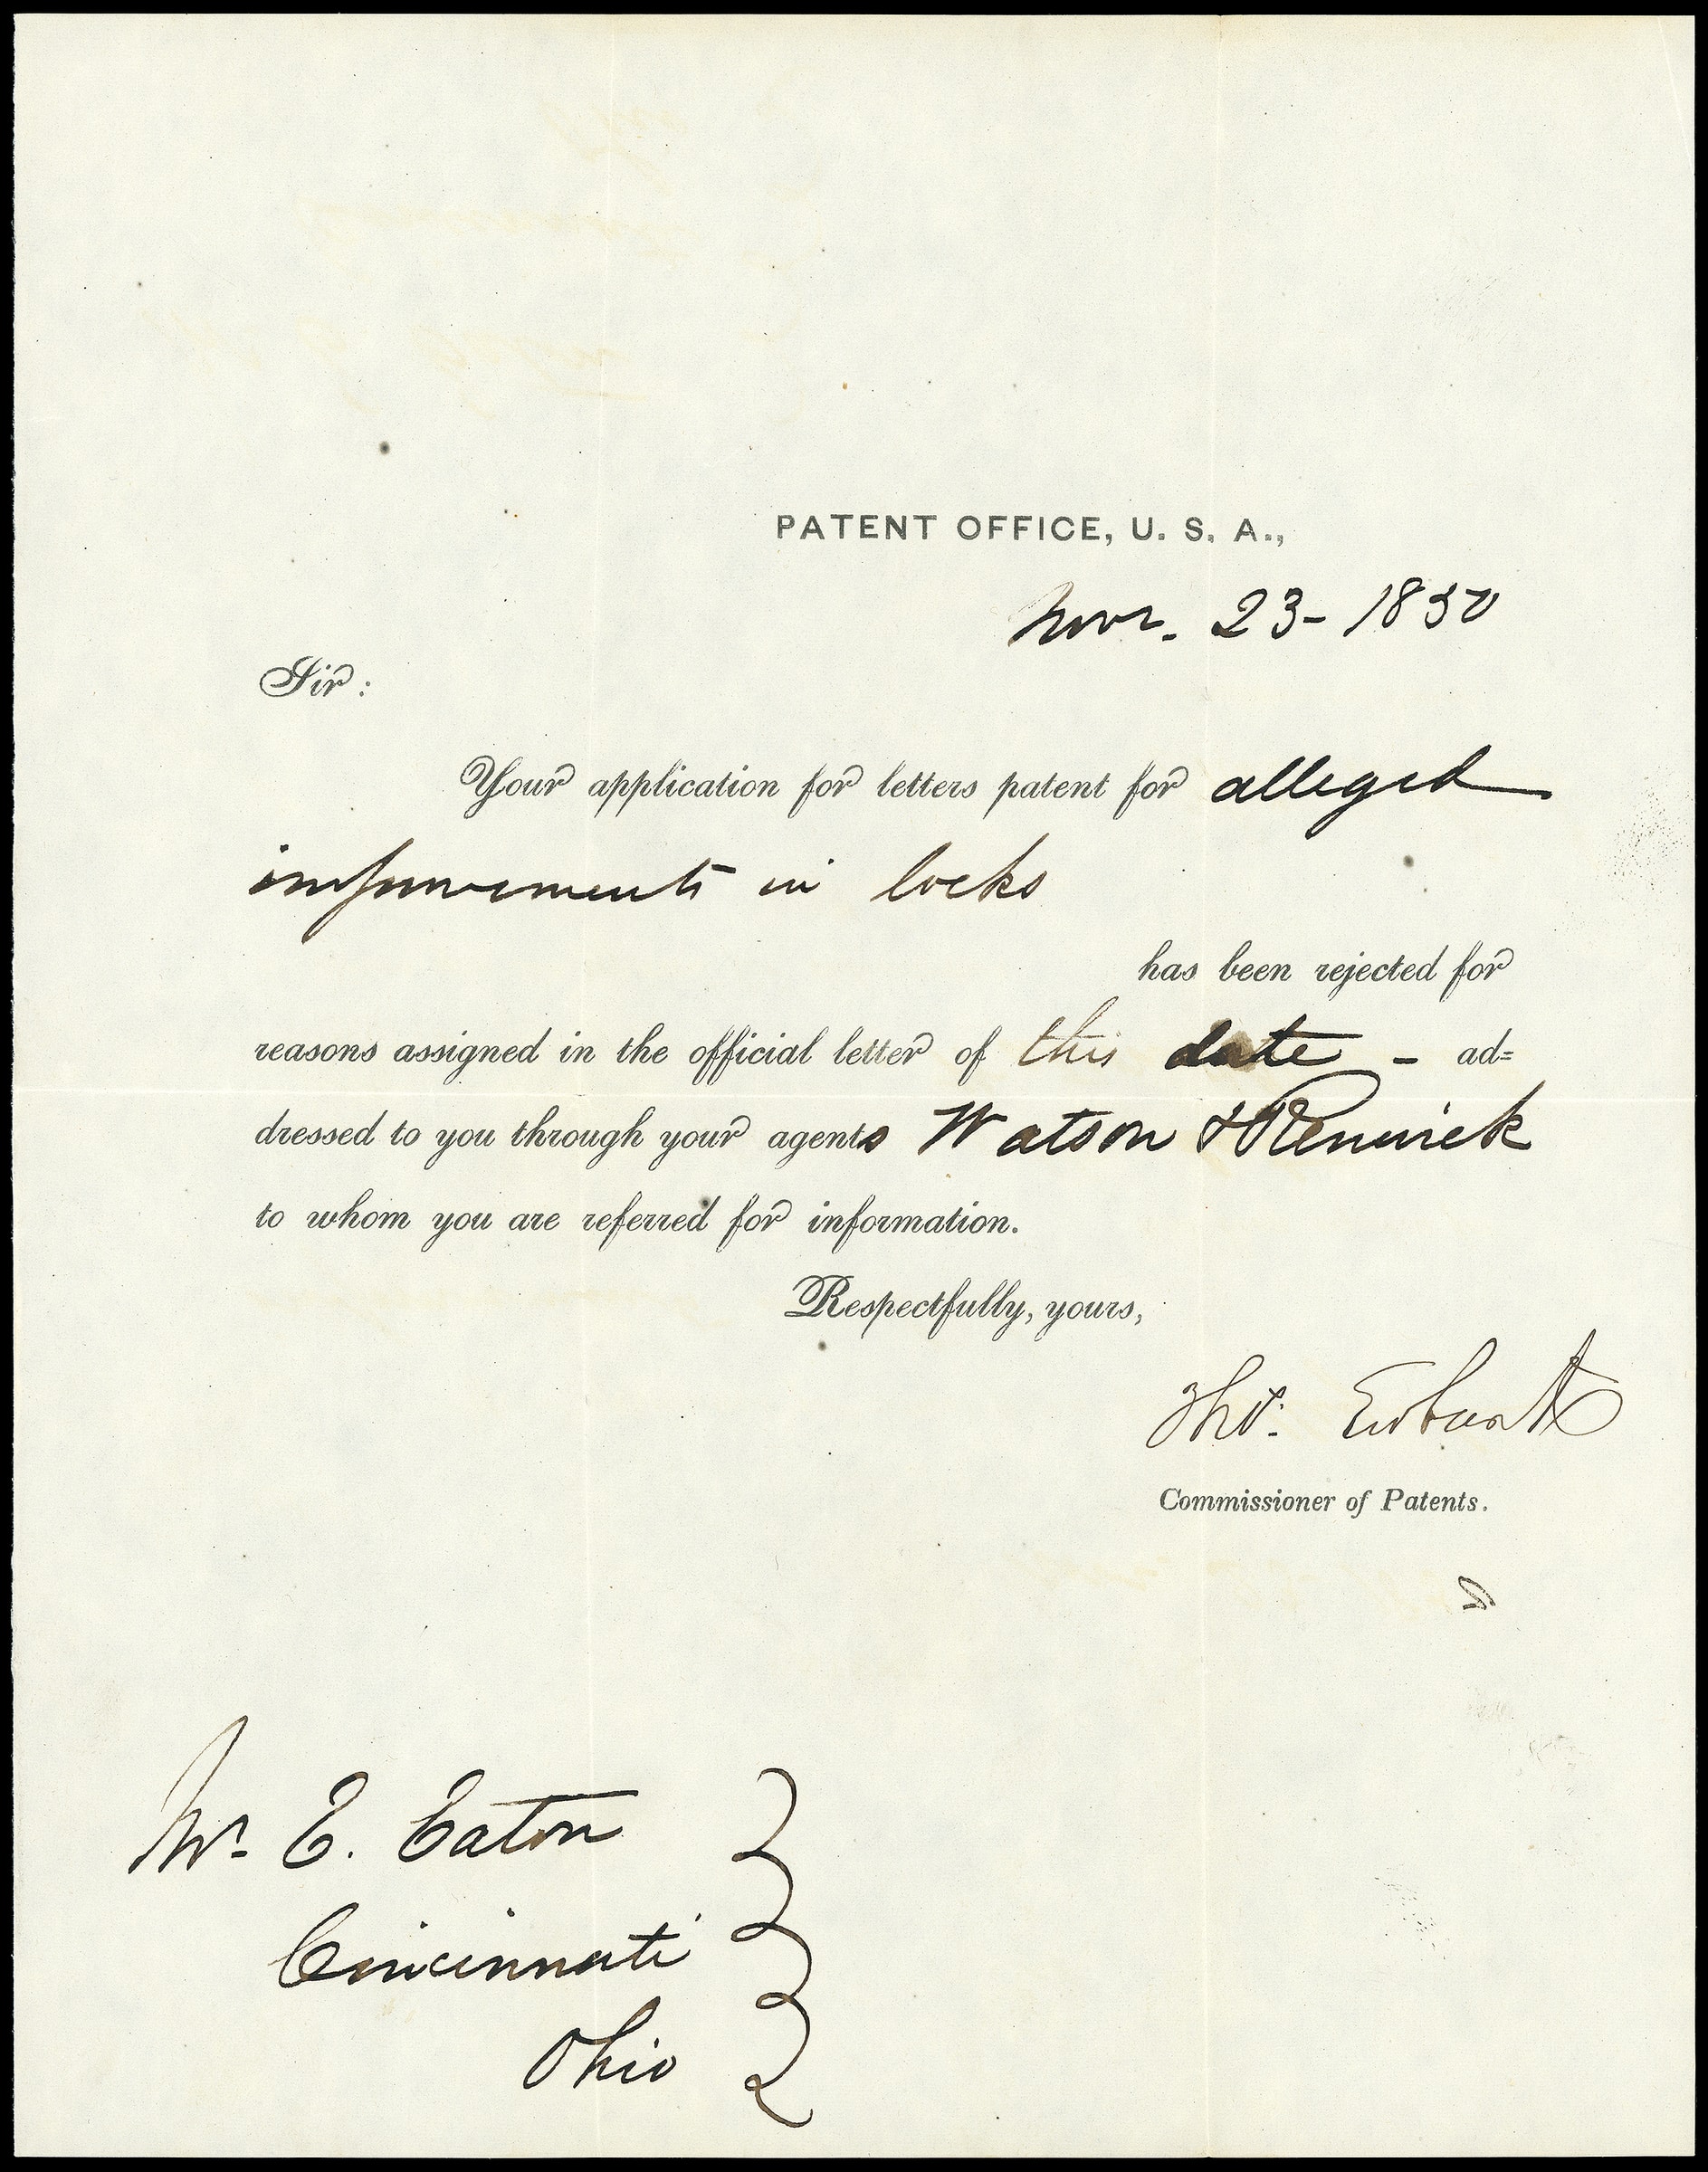 PATENT OFFICE, U. S. A.,
Novr. 23- 1850
Sir:
Your application for letters patent for alleged
improvements in locks
has been rejected for
reasons assigned in the official letter of this date - ad=
dressed to you through your agents Watson & Renwick
to whom you are referred for information.
Respectfully, yours,
Thos. Ewbank
Commissioner of Patents.
Mr. E. Eaton
Cincinnati
Ohio